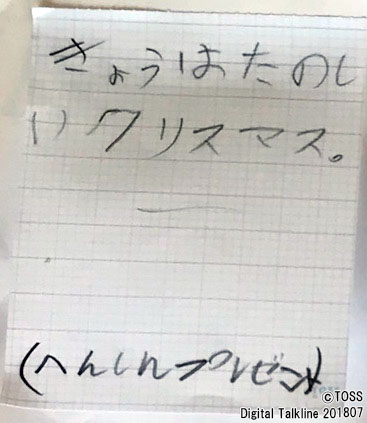 きょうはたのし
いクリスマス。
(へんしんプレゼント)
©TOSS
Digital Talkline 201807